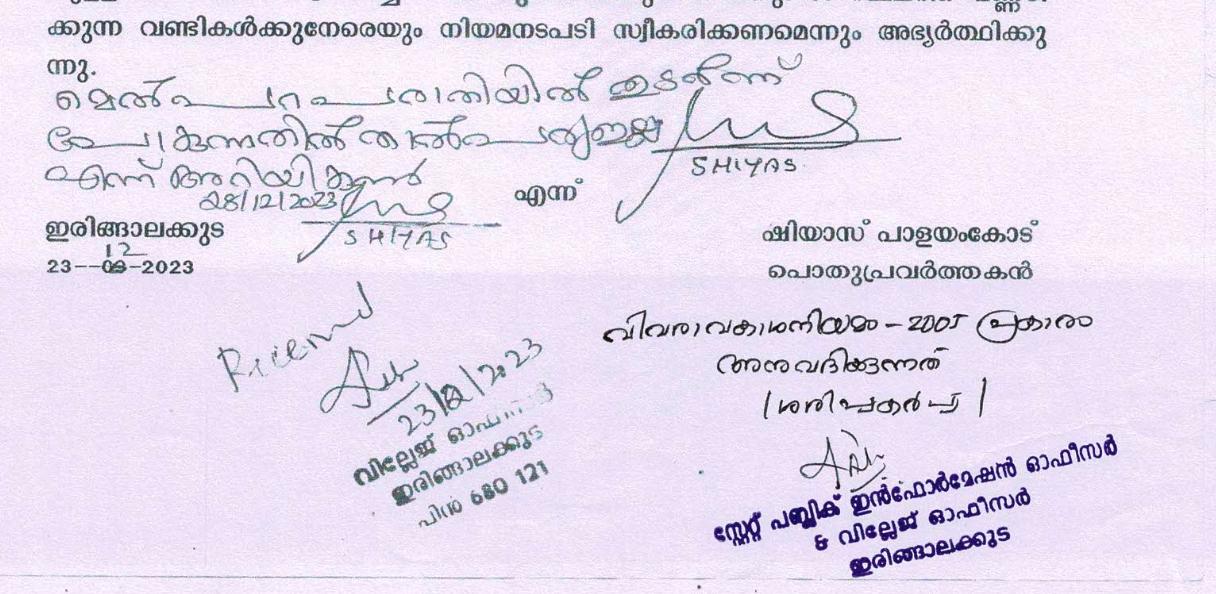 ക്കുന്ന വണ്ടികൾക്കുനേരെയും നിയമനടപടി സ്വീകരിക്കണമെന്നും അഭ്യർത്ഥിക്കു
ന്നു.
മേൽപറ പരാതിയിൽ തുടർന്ന്
പോകുന്നതിൽ താൽപര്യഇല്ല
എന്ന് അറിയിക്കുന്നു
SHIYAS.
28/12/2023
SHIYAS
എന്ന്
ഇരിങ്ങാലക്കുട
12
23--09-2023
ഷിയാസ് പാളയംകോട്
പൊതുപ്രവർത്തകൻ
Received
23/12/2023
വില്ലേജ് ഓഫീസർ
ഇരിങ്ങാലക്കുട
പിൻ 680 121
വിവരാവകാശനിയമം - 2005 പ്രകാരം
അനുവദിക്കുന്നത്
/ശരിപ്പകർപ്പ്/
സ്റ്റേറ്റ് പബ്ലിക് ഇൻഫോർമേഷൻ ഓഫീസർ
& വില്ലേജ് ഓഫീസർ
ഇരിങ്ങാലക്കുട